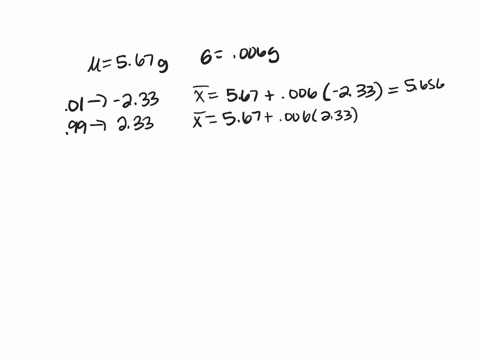 μ = 5.67 g   σ = .006 g
.01 → -2.33   x̄ = 5.67 + .006 (-2.33) = 5.656
.99 → 2.33   x̄ = 5.67 + .006 (2.33)